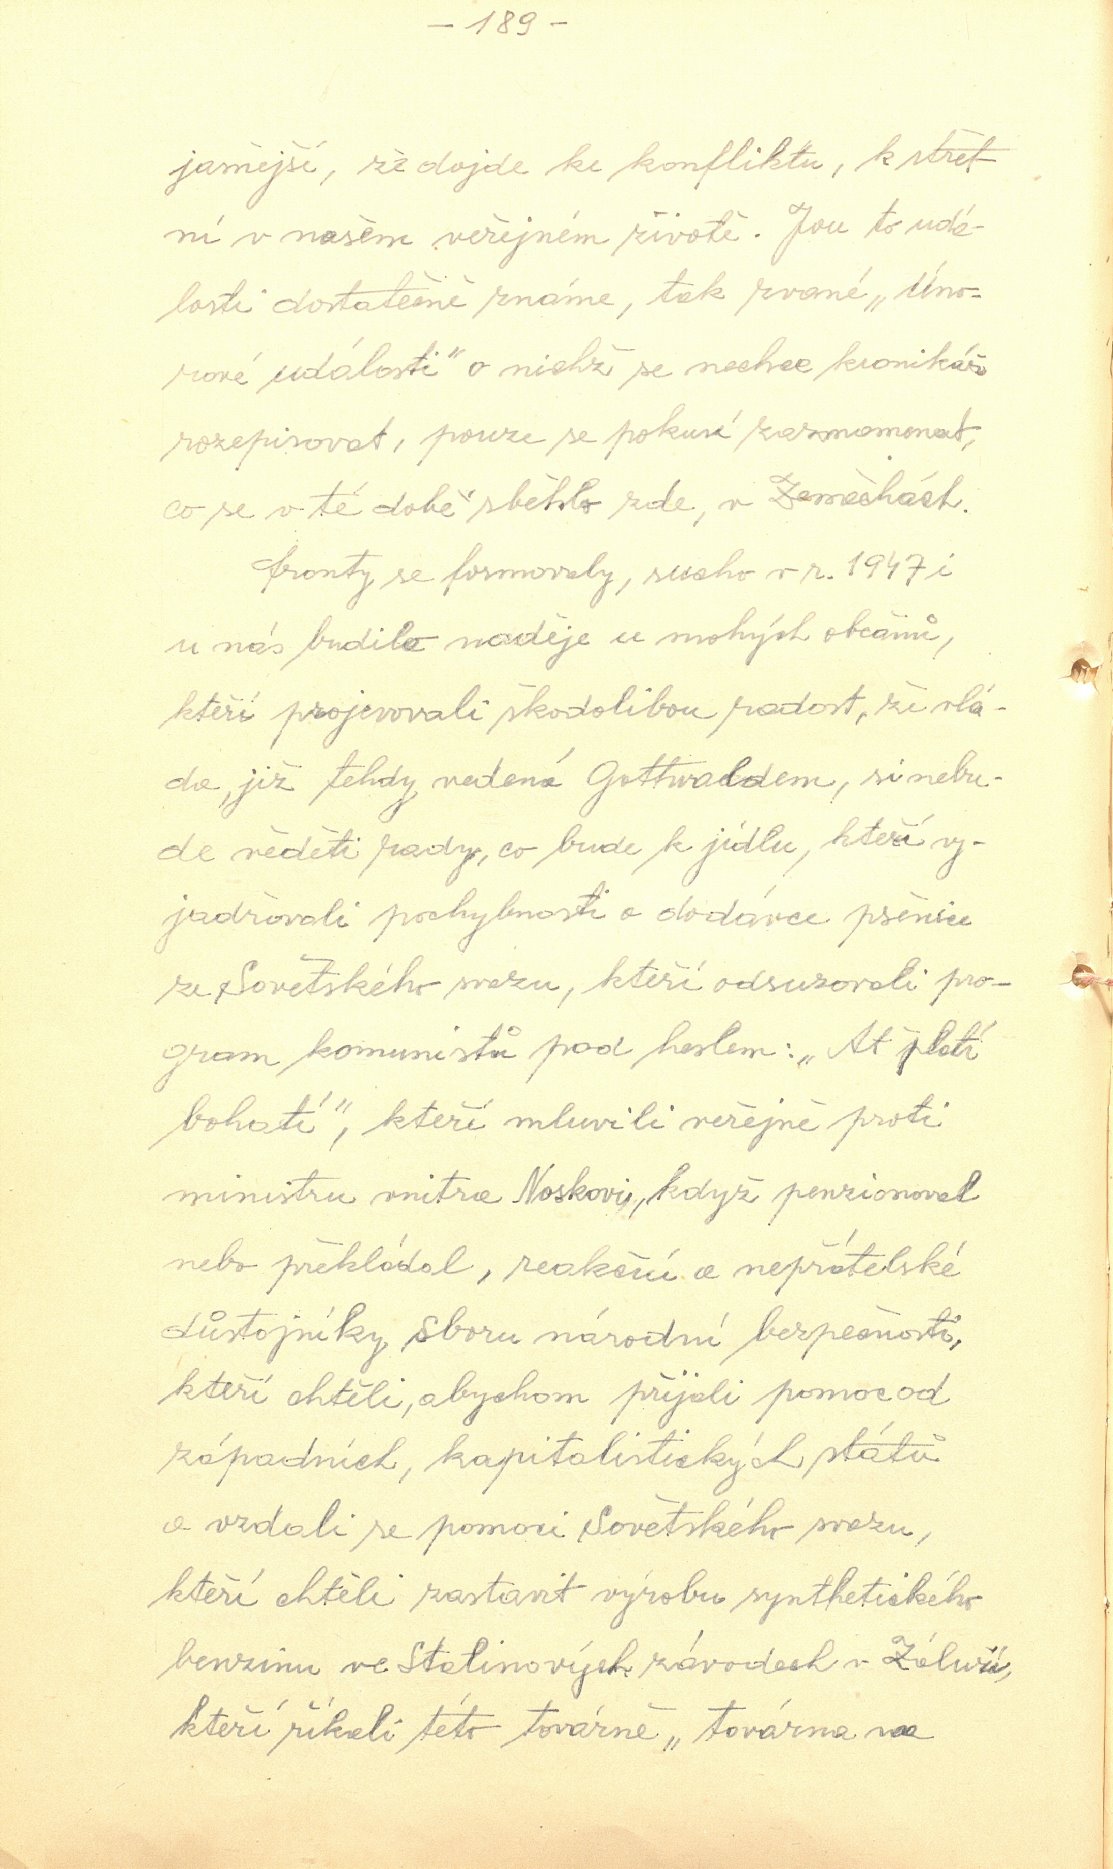 - 189 -
jasnější, že dojde ke konfliktu, k střet-
ní v našem veřejném životě. Jou to udá-
losti dostatečně známe, tak zvané „Úno-
rové události" o nichž se nechce kronikář
rozepisovat, pouze se pokusí zaznamenat,
co se v té době sběhlo zde, v Zeměchách.
Fronty se formovaly, sucho v r. 1947 i
u nás budilo naděje u mohých občanů,
kteří projevovali škodolibou radost, že vlá-
da, již tehdy vedená Gottwaldem, si nebu-
de věděti rady, co bude k jídlu, kteří vy-
jadřovali pochybnosti o dodávce pšenice
ze Sovětského svazu, kteří odsuzovali pro-
gram komunistů pod heslem: „Ať platí
bohatí", kteří mluvili veřejně proti
ministru vnitra Noskovi, když penzionoval
nebo překládal, reakční a nepřátelské
důstojníky Sboru národní bezpečnosti,
kteří chtěli, abychom přijali pomoc od
západních, kapitalistických států
a vzdali se pomoci Sovětského svazu,
kteří chtěli zastavit výrobu synthetického
benzinu ve Stalinových závodech v Záluží,
kteří říkali této továrně „továrna na